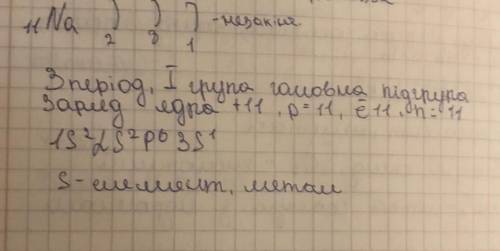 ₁₁Na ) ) ) - незакінч.
2 8 1
3 період, І група головна підгрупа
Заряд ядра +11, p=11, ē 11, n=11
1S²2S²P⁶3S¹
S-елемент, метал